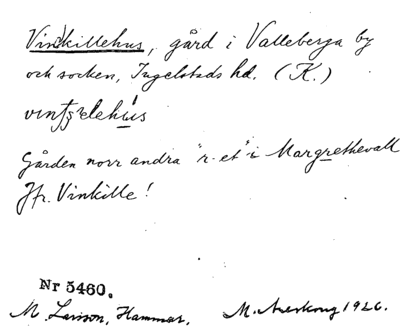 Vinkillehus, gård i Valleberga by
och socken, Ingelstads hd. (K.)
Gården norr andra "r-et" i Margrethevall
Jfr. Vinkille!
Nr 5460.
M. Larsson, Hammar. M. 1926.